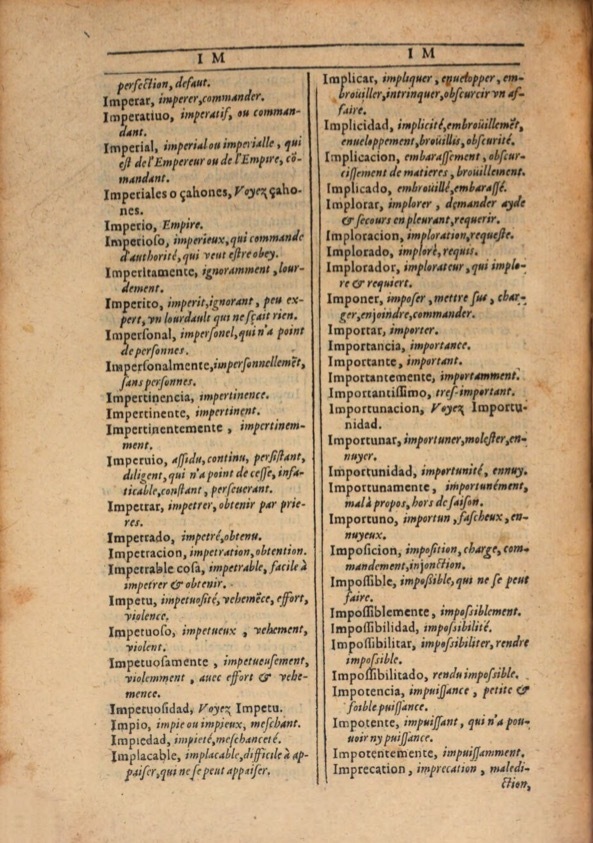 I M
perfection, defaut.
Imperar, imperer, commander.
Imperatiuo, imperatif, ou comman-
dant.
Imperial, imperial ou imperialle, qui
est de l'Empereur ou de l'Empire, cõ-
mandant.
Imperiales o çahones, Voyez çaho-
nes.
Imperio, Empire.
Imperioso, imperieux, qui commande
d'authorité, qui veut estre obey.
Imperitamente, ignoramment, lour-
dement.
Imperito, imperit, ignorant, peu ex-
pert, vn lourdault qui ne sçait rien.
Impersonal, impersonel, qui n'a point
de personnes.
Impersonalmente, impersonnellemẽt,
sans personnes.
Impertinencia, impertinence.
Impertinente, impertinent.
Impertinentemente, impertinem-
ment.
Imperuio, assidu, continu, persistant,
diligent, qui n'a point de cesse, infa-
ticable, constant, perseuerant.
Impetrar, impetrer, obtenir par prie-
res.
Impetrado, impetré, obtenu.
Impetracion, impetration, obtention.
Impetrable cosa, impetrable, facile à
impetrer & obtenir.
Impetu, impetuosité, vehemẽce, effort,
violence.
Impetuoso, impetueux, vehement,
violent.
Impetuosamente, impetueusement,
violemment, auec effort & vehe-
mence.
Impetuosidad, Voyez Impetu.
Impio, impie ou impieux, meschant.
Impiedad, impieté, meschanceté.
Implacable, implacable, difficile à ap-
paiser, qui ne se peut appaiser.
I M
Implicar, impliquer, enuelopper, em-
broüiller, intrinquer, obscurcir vn af-
faire.
Implicidad, implicité, embroüillemẽt,
enueloppement, broüillis, obscurité.
Implicacion, embarassement, obscur-
cissement de matieres, broüillement.
Implicado, embroüillé, embarassé.
Implorar, implorer, demander ayde
& secours en pleurant, requerir.
Imploracion, imploration, requeste.
Implorado, imploré, requis.
Implorador, implorateur, qui implo-
re & requiert.
Imponer, imposer, mettre sus, char-
ger, enjoindre, commander.
Importar, importer.
Importancia, importance.
Importante, important.
Importantemente, importamment.
Importantissimo, tres-important.
Importunacion, Voyez Importu-
nidad.
Importunar, importuner, molester, en-
nuyer.
Importunidad, importunité, ennuy.
Importunamente, importunément,
mal à propos, hors de saison.
Importuno, importun, fascheux, en-
nuyeux.
Imposicion, imposition, charge, com-
mandement, injonction.
Impossible, impossible, qui ne se peut
faire.
Impossiblemente, impossiblement.
Impossibilidad, impossibilité.
Impossibilitar, impossibiliter, rendre
impossible.
Impossibilitado, rendu impossible.
Impotencia, impuissance, petite &
foible puissance.
Impotente, impuissant, qui n'a pou-
uoir ny puissance.
Impotentemente, impuissamment.
Imprecation, imprecation, maledi-
ction,